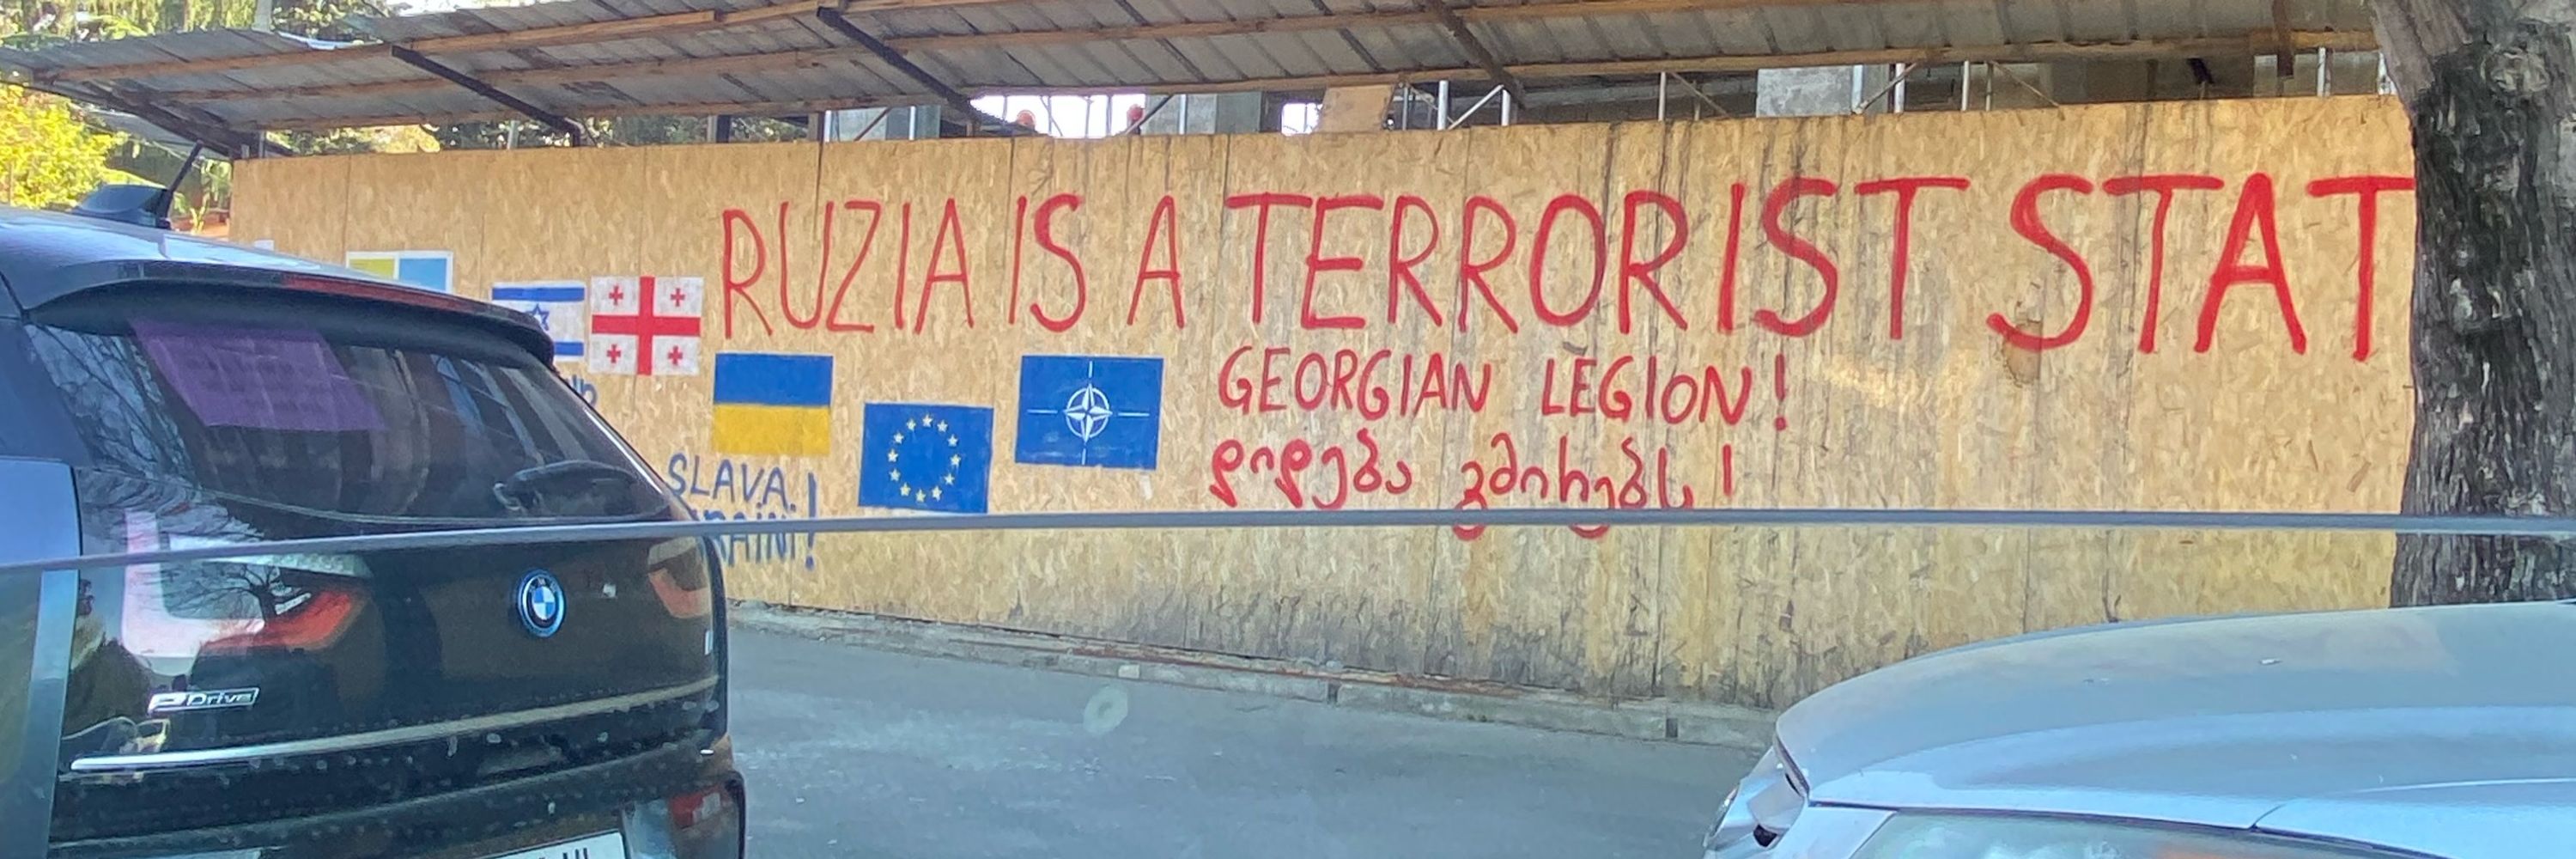 RUZIA IS A TERRORIST STAT
GEORGIAN LEGION!
დიდება გმირებს!
SLAVA
RAINI!
eDrive